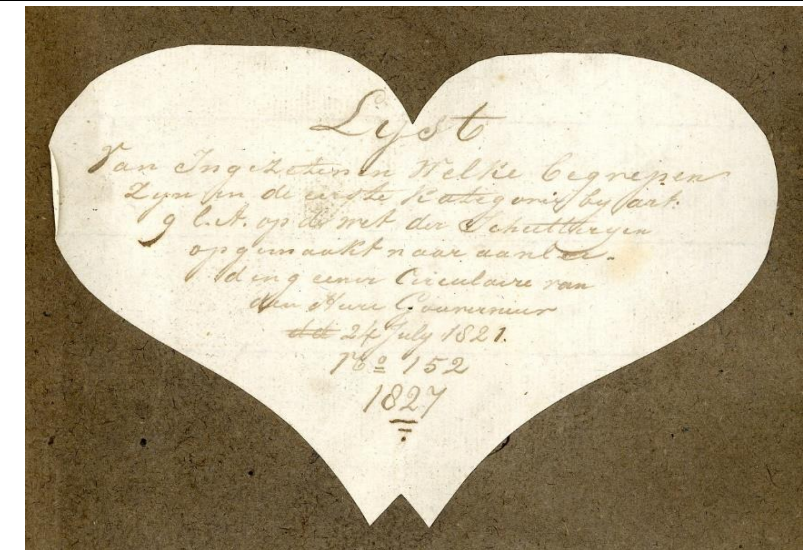 Lyst
Van Ingezetenen Welke begrepen
Zyn in de eerste Kategorie by art.
9 L.A. op de wet der Schutteryen
opgemaakt naar aanlei-
ding eener Circulaire van
den Heere Gouverneur
dd 24 July 1821.
No 152
1827